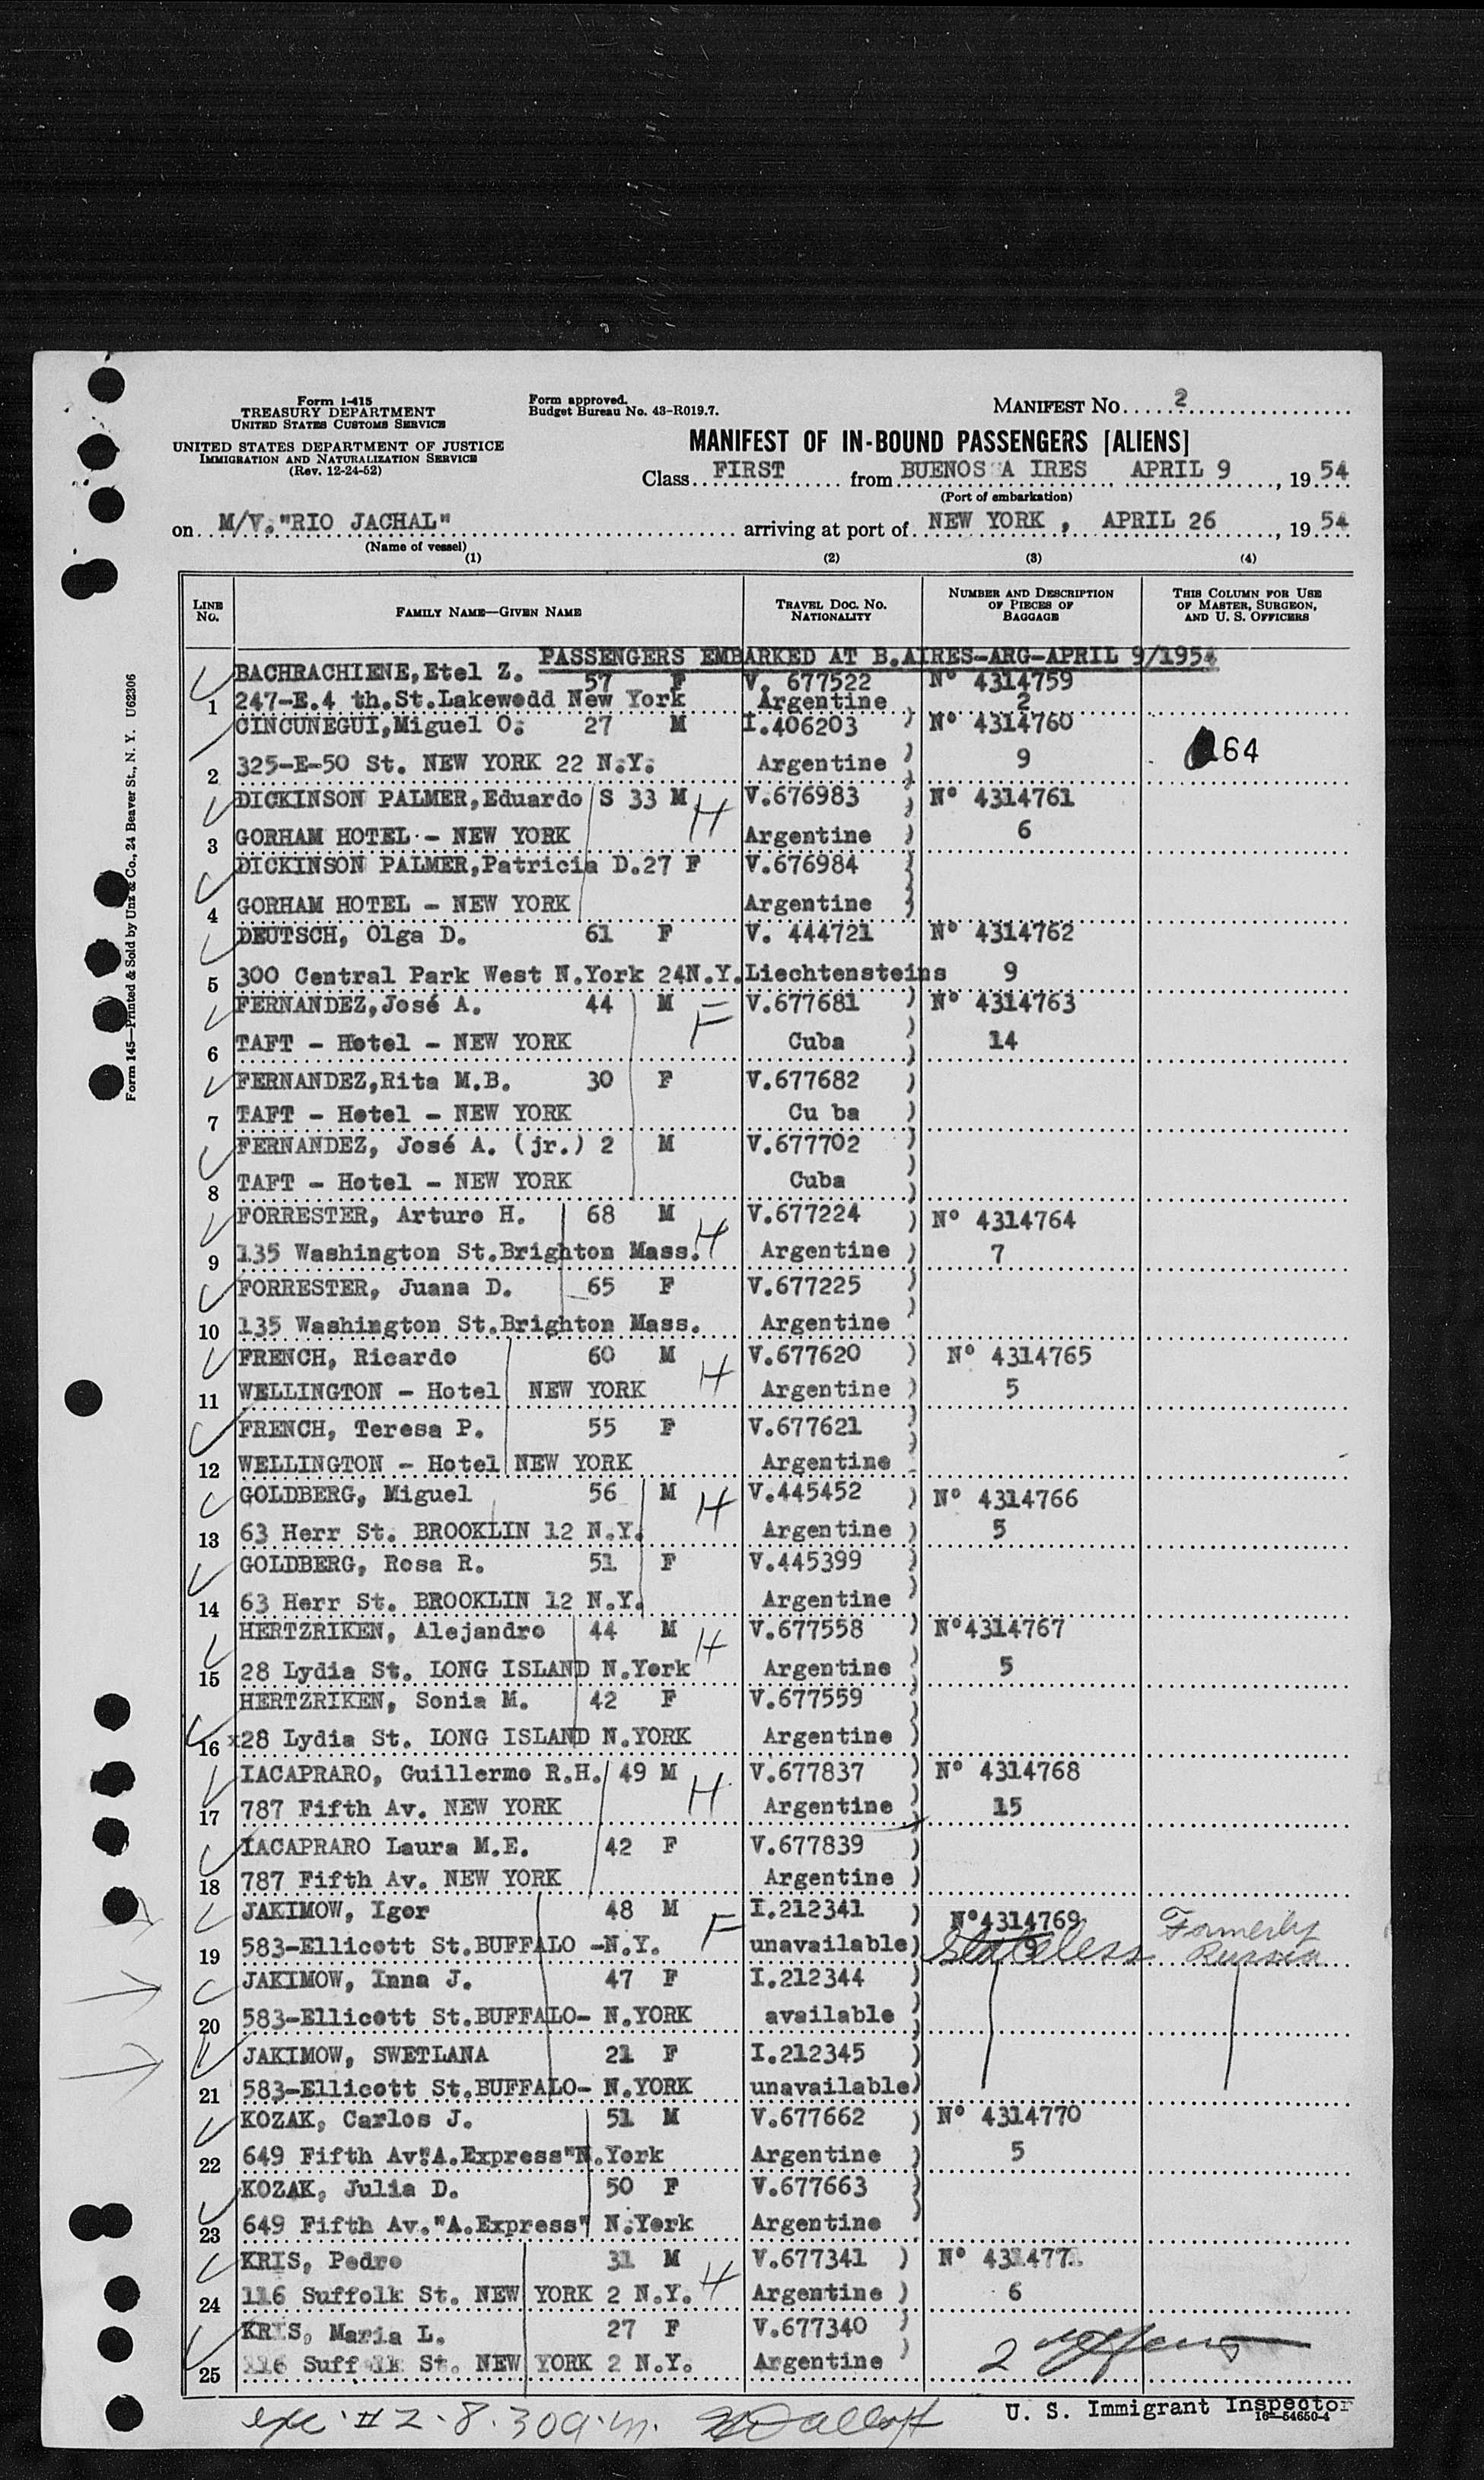 Form I-415
TREASURY DEPARTMENT
UNITED STATES CUSTOMS SERVICE
UNITED STATES DEPARTMENT OF JUSTICE
IMMIGRATION AND NATURALIZATION SERVICE
(Rev. 12-24-52)
Form approved.
Budget Bureau No. 43-R019.7.
MANIFEST NO. 2
MANIFEST OF IN-BOUND PASSENGERS [ALIENS]
Class FIRST from BUENOS A IRES APRIL 9, 19 54
(Port of embarkation)
on M/V. "RIO JACHAL" arriving at port of NEW YORK, APRIL 26, 19 54
(Name of vessel)
(1) (2) (3) (4)
LINE NO. FAMILY NAME—GIVEN NAME TRAVEL DOC. NO. NATIONALITY NUMBER AND DESCRIPTION OF PIECES OF BAGGAGE THIS COLUMN FOR USE OF MASTER, SURGEON, AND U. S. OFFICERS
PASSENGERS EMBARKED AT B.AIRES-ARG-APRIL 9/1954
BACHRACHIENE,Etel Z. 57 F V. 677522 Nº 4314759
1 247-E.4 th.St.Lakewodd New York Argentine 2
CINCUNEGUI,Miguel O. 27 M I.406203 ) Nº 4314760
2 325-E-50 St. NEW YORK 22 N.Y. Argentine ) 9 164
DICKINSON PALMER,Eduardo S 33 M H V.676983 ) Nº 4314761
3 GORHAM HOTEL - NEW YORK Argentine ) 6
DICKINSON PALMER,Patricia D.27 F V.676984 )
4 GORHAM HOTEL - NEW YORK Argentine )
DEUTSCH, Olga D. 61 F V. 444721 Nº 4314762
5 300 Central Park West N.York 24N.Y. Liechtensteins 9
FERNANDEZ,José A. 44 M F V.677681 ) Nº 4314763
6 TAFT - Hotel - NEW YORK Cuba ) 14
FERNANDEZ,Rita M.B. 30 F V.677682 )
7 TAFT - Hotel - NEW YORK Cu ba )
FERNANDEZ, José A. (jr.) 2 M V.677702 )
8 TAFT - Hotel - NEW YORK Cuba )
FORRESTER, Arturo H. 68 M H V.677224 ) Nº 4314764
9 135 Washington St.Brighton Mass. Argentine ) 7
FORRESTER, Juana D. 65 F V.677225 )
10 135 Washington St.Brighton Mass. Argentine )
FRENCH, Ricardo 60 M H V.677620 ) Nº 4314765
11 WELLINGTON - Hotel NEW YORK Argentine ) 5
FRENCH, Teresa P. 55 F V.677621 )
12 WELLINGTON - Hotel NEW YORK Argentine
GOLDBERG, Miguel 56 M H V.445452 ) Nº 4314766
13 63 Herr St. BROOKLIN 12 N.Y. Argentine ) 5
GOLDBERG, Rosa R. 51 F V.445399 )
14 63 Herr St. BROOKLIN 12 N.Y. Argentine )
HERTZRIKEN, Alejandro 44 M H V.677558 ) Nº4314767
15 28 Lydia St. LONG ISLAND N.York Argentine ) 5
HERTZRIKEN, Sonia M. 42 F V.677559 )
16 x28 Lydia St. LONG ISLAND N.YORK Argentine )
IACAPRARO, Guillermo R.H. 49 M H V.677837 ) Nº 4314768
17 787 Fifth Av. NEW YORK Argentine ) 15
IACAPRARO Laura M.E. 42 F V.677839 )
18 787 Fifth Av. NEW YORK Argentine )
JAKIMOW, Igor 48 M F I.212341 ) Nº4314769 Formerly
19 583-Ellicott St.BUFFALO -N.Y. unavailable) 9 Stateless Russia
JAKIMOW, Inna J. 47 F I.212344 )
20 583-Ellicott St.BUFFALO- N.YORK available )
JAKIMOW, SWETLANA 21 F I.212345 )
21 583-Ellicott St.BUFFALO- N.YORK unavailable)
KOZAK, Carlos J. 51 M V.677662 ) Nº 4314770
22 649 Fifth Av."A.Express"N.York Argentine ) 5
KOZAK, Julia D. 50 F V.677663 )
23 649 Fifth Av."A.Express" N.York Argentine
KRIS, Pedro 31 M H V.677341 ) Nº 431477
24 116 Suffolk St. NEW YORK 2 N.Y. Argentine ) 6
KRIS, Maria L. 27 F V.677340 )
25 116 Suff lk St. NEW YORK 2 N.Y. Argentine ) 2
U. S. Immigrant Inspector
16-54650-4
exc. #2-8.30a.m.
Form 145—Printed & Sold by Unz & Co., 24 Beaver St., N. Y. U62306